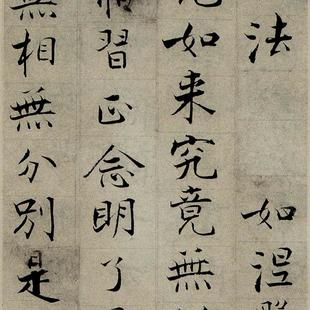 法 如涅
如来究竟無
習正念明了
無相無分別是